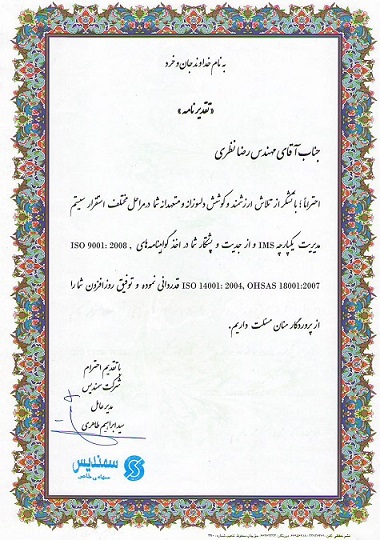 به نام خداوند جان و خرد
«تقدیرنامه»
جناب آقای مهندس رضا نظری
احتراماً؛ با تشکر از تلاش ارزشمند و کوشش دلسوزانه و متعهدانه شما در مراحل مختلف استقرار سیستم
مدیریت یکپارچه IMS و از جدیت و پشتکار شما در اخذ گواهینامه‌های ISO 9001: 2008 ,
ISO 14001: 2004, OHSAS 18001:2007 قدردانی نموده و توفیق روزافزون شما را
از پروردگار منان مسئلت داریم.
با تقدیم احترام
شرکت سمندیس
مدیر عامل
سید ابراهیم طاهری
سمندیس
سهامی خاص